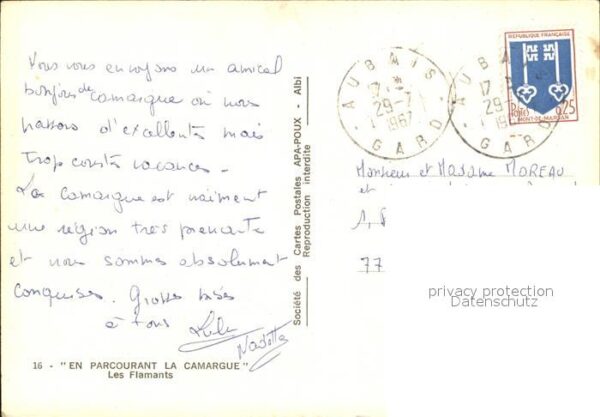 Nous vous envoyons un amical
bonjour de Camargue où nous
passons d'excellentes mais
trop courtes vacances -
La Camargue est vraiment
une région très prenante
et nous sommes absolument
conquises. Grosses bises
à tous
16 - "EN PARCOURANT LA CAMARGUE"
Les Flamants
Société des Cartes Postales APA-POUX - Albi
Reproduction interdite
AUBAIS
29-7
1967
GARD
AUBAIS
17
29-
GARD
REPUBLIQUE FRANÇAISE
Postes
0,25
MONT-DE-MARSAN
Monsieur et Madame MOREAU
et
77
privacy protection
Datenschutz